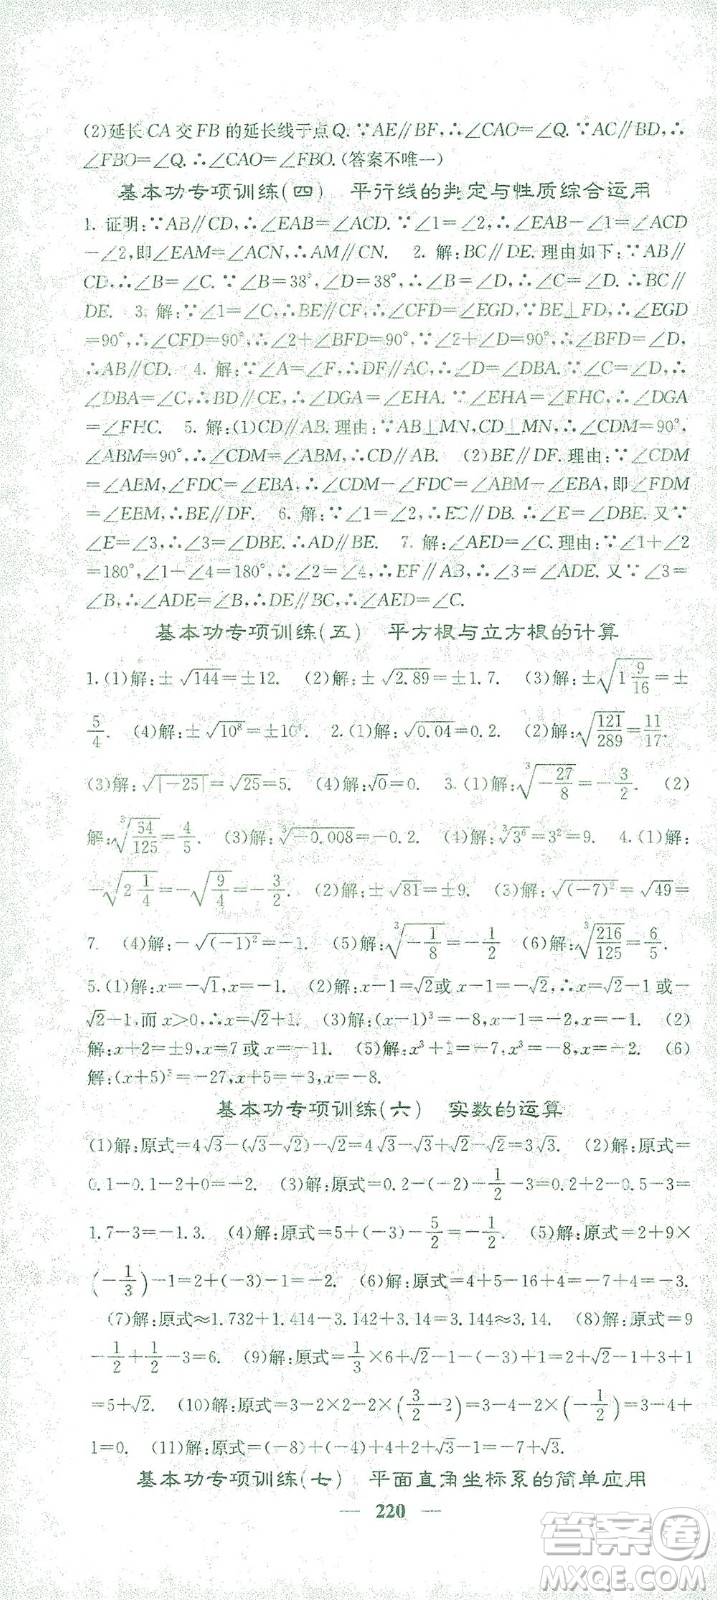 (2)延长CA交FB的延长线于点Q.∵AE∥BF,∴∠CAE=∠Q.∵AC∥BD,∴
∠FBO=∠Q.∴∠CAE=∠FBO.(答案不唯一)
基本功专项训练(四) 平行线的判定与性质综合运用
1. 证明:∵AB∥CD,∴∠EAB=∠ACD.∵∠1=∠2,∴∠EAB-∠1=∠ACD
-∠2,即∠EAM=∠ACN,∴AM∥CN. 2. 解:BC∥DE.理由如下:∵AB∥
CD,∴∠B=∠C.∵∠B=38°,∠D=38°,∴∠B=∠D.∴∠C=∠D.∴BC∥
DE. 3. 解:∵∠1=∠C,∴BE∥CF.∴∠CFD=∠EGD,∵BE⊥FD,∴∠EGD
=90°,∴∠CFD=90°,∴∠2+∠BFD=90°.∵∠2+∠D=90°,∴∠BFD=∠D,
∴AB∥CD. 4. 解:∵∠A=∠F,∴DF∥AC,∴∠D=∠DBA.∵∠D=∠C,∴
∠DBA=∠C,∴DB∥CE,∴∠DGA=∠EHA.∵∠EHA=∠FHC,∴∠DGA
=∠FHC. 5. 解:(1)CD∥AB.理由:∵AB⊥MN,CD⊥MN,∴∠CDM=90°,
∠ABM=90°,∴∠CDM=∠ABM,∴CD∥AB. (2)BE∥DF.理由:∵∠CDM=
∠ABM,∠FDC=∠EBA,∴∠CDM-∠FDC=∠ABM-∠EBA,即∠FDM=
∠EBM,∴BE∥DF. 6. 解:∵∠1=∠2,∴EC∥DB.∴∠DBE=∠C.又∵
∠C=∠D,∴∠D=∠DBE.∴AD∥BE. 7. 解:∠AED=∠C.理由:∵∠1+∠2
=180°,∠1+∠4=180°,∴∠2=∠4,∴EF∥AB,∴∠3=∠ADE.又∵∠3=
∠B,∴∠ADE=∠B,∴DE∥BC,∴∠AED=∠C.
基本功专项训练(五) 平方根与立方根的计算
1.(1)解:±√144=±12. (2)解:±√2.89=±1.7. (3)解:±√(1 9/16)=±
5/4. (4)解:±√10⁸=±10⁴. 2.(1)解:√0.04=0.2. (2)解:√(121/289)=11/17.
(3)解:√|-25|=√25=5. (4)解:√0=0. 3.(1)解:∛(-27/8)=-3/2. (2)
解:∛(64/125)=4/5. (3)解:∛-0.008=-0.2. (4)解:∛3⁶=3²=9. 4.(1)解:
-√(2 1/4)=-√(9/4)=-3/2. (2)解:±√81=±9. (3)解:√(-7)²=√49=
7. (4)解:-√(-1)²=-1. (5)解:∛(-1/8)=-1/2. (6)解:∛(216/125)=6/5.
5.(1)解:x=-√1,x=-1. (2)解:x-1=√2或x-1=-√2,∴x=√2+1或x=-
√2+1,而x>0,∴x=√2+1. (3)解:(x-1)³=-8,x-1=-2,x=-1. (4)
解:x+2=±9,x=7或x=-11. (5)解:x³+1=-7,x³=-8,x=-2. (6)
解:(x+5)³=-27,x+5=-3,x=-8.
基本功专项训练(六) 实数的运算
(1)解:原式=4√3-(√3-√2)-√2=4√3-√3+√2-√2=3√3. (2)解:原式=
0.1-0.1-2+0=-2. (3)解:原式=0.2-(-2)-1/2-3=0.2+2-0.5-3=
1.7-3=-1.3. (4)解:原式=5+(-3)-5/2=-1/2. (5)解:原式=2+9×
(-1/3)-1=2+(-3)-1=-2. (6)解:原式=4+5-16=-7. 
(7)解:原式≈1.732+1.414-3.142+3.14=3.144≈3.14. (8)解:原式=9
-1/2+1/2-3=6. (9)解:原式=1/3×6+√2-1-(-3)+1=2+√2-1+3+1
=5+√2. (10)解:原式=3-2×2-2×(3/2-2)=3-4-2×(-1/2)=3-4+
1=0. (11)解:原式=(-8)+(-4)+4+2+√3-1=-7+√3.
基本功专项训练(七) 平面直角坐标系的简单应用
— 220 —
答案圈
MXQE.COM